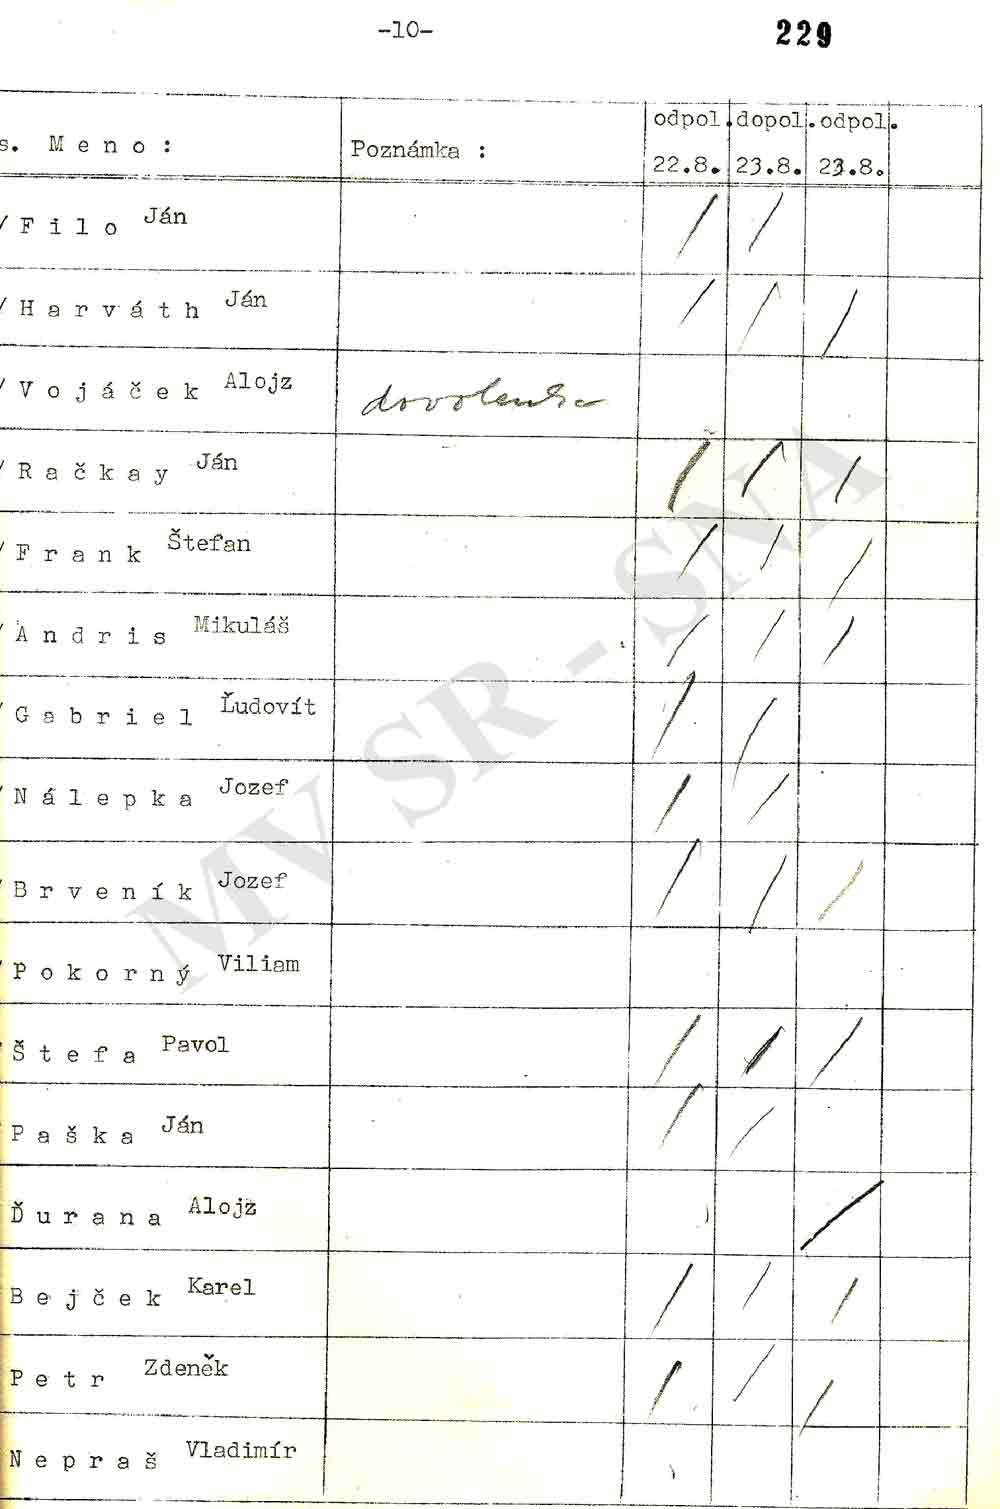 -10-
229
s. Meno: Poznámka : odpol. dopol. odpol.
22.8. 23.8. 23.8.
/Filo Ján / /
/Harváth Ján / / /
/Vojáček Alojz dovolenka
/Račkay Ján / / /
/Frank Štefan / / /
/Andris Mikuláš / / /
/Gabriel Ľudovít / /
/Nálepka Jozef / /
/Brveník Jozef / / /
/Pokorný Viliam
/Štefa Pavol / / /
Paška Ján / /
Ďurana Alojz /
Bejček Karel / / /
Petr Zdeněk / / /
Nepraš Vladimír
MV SR - SNA